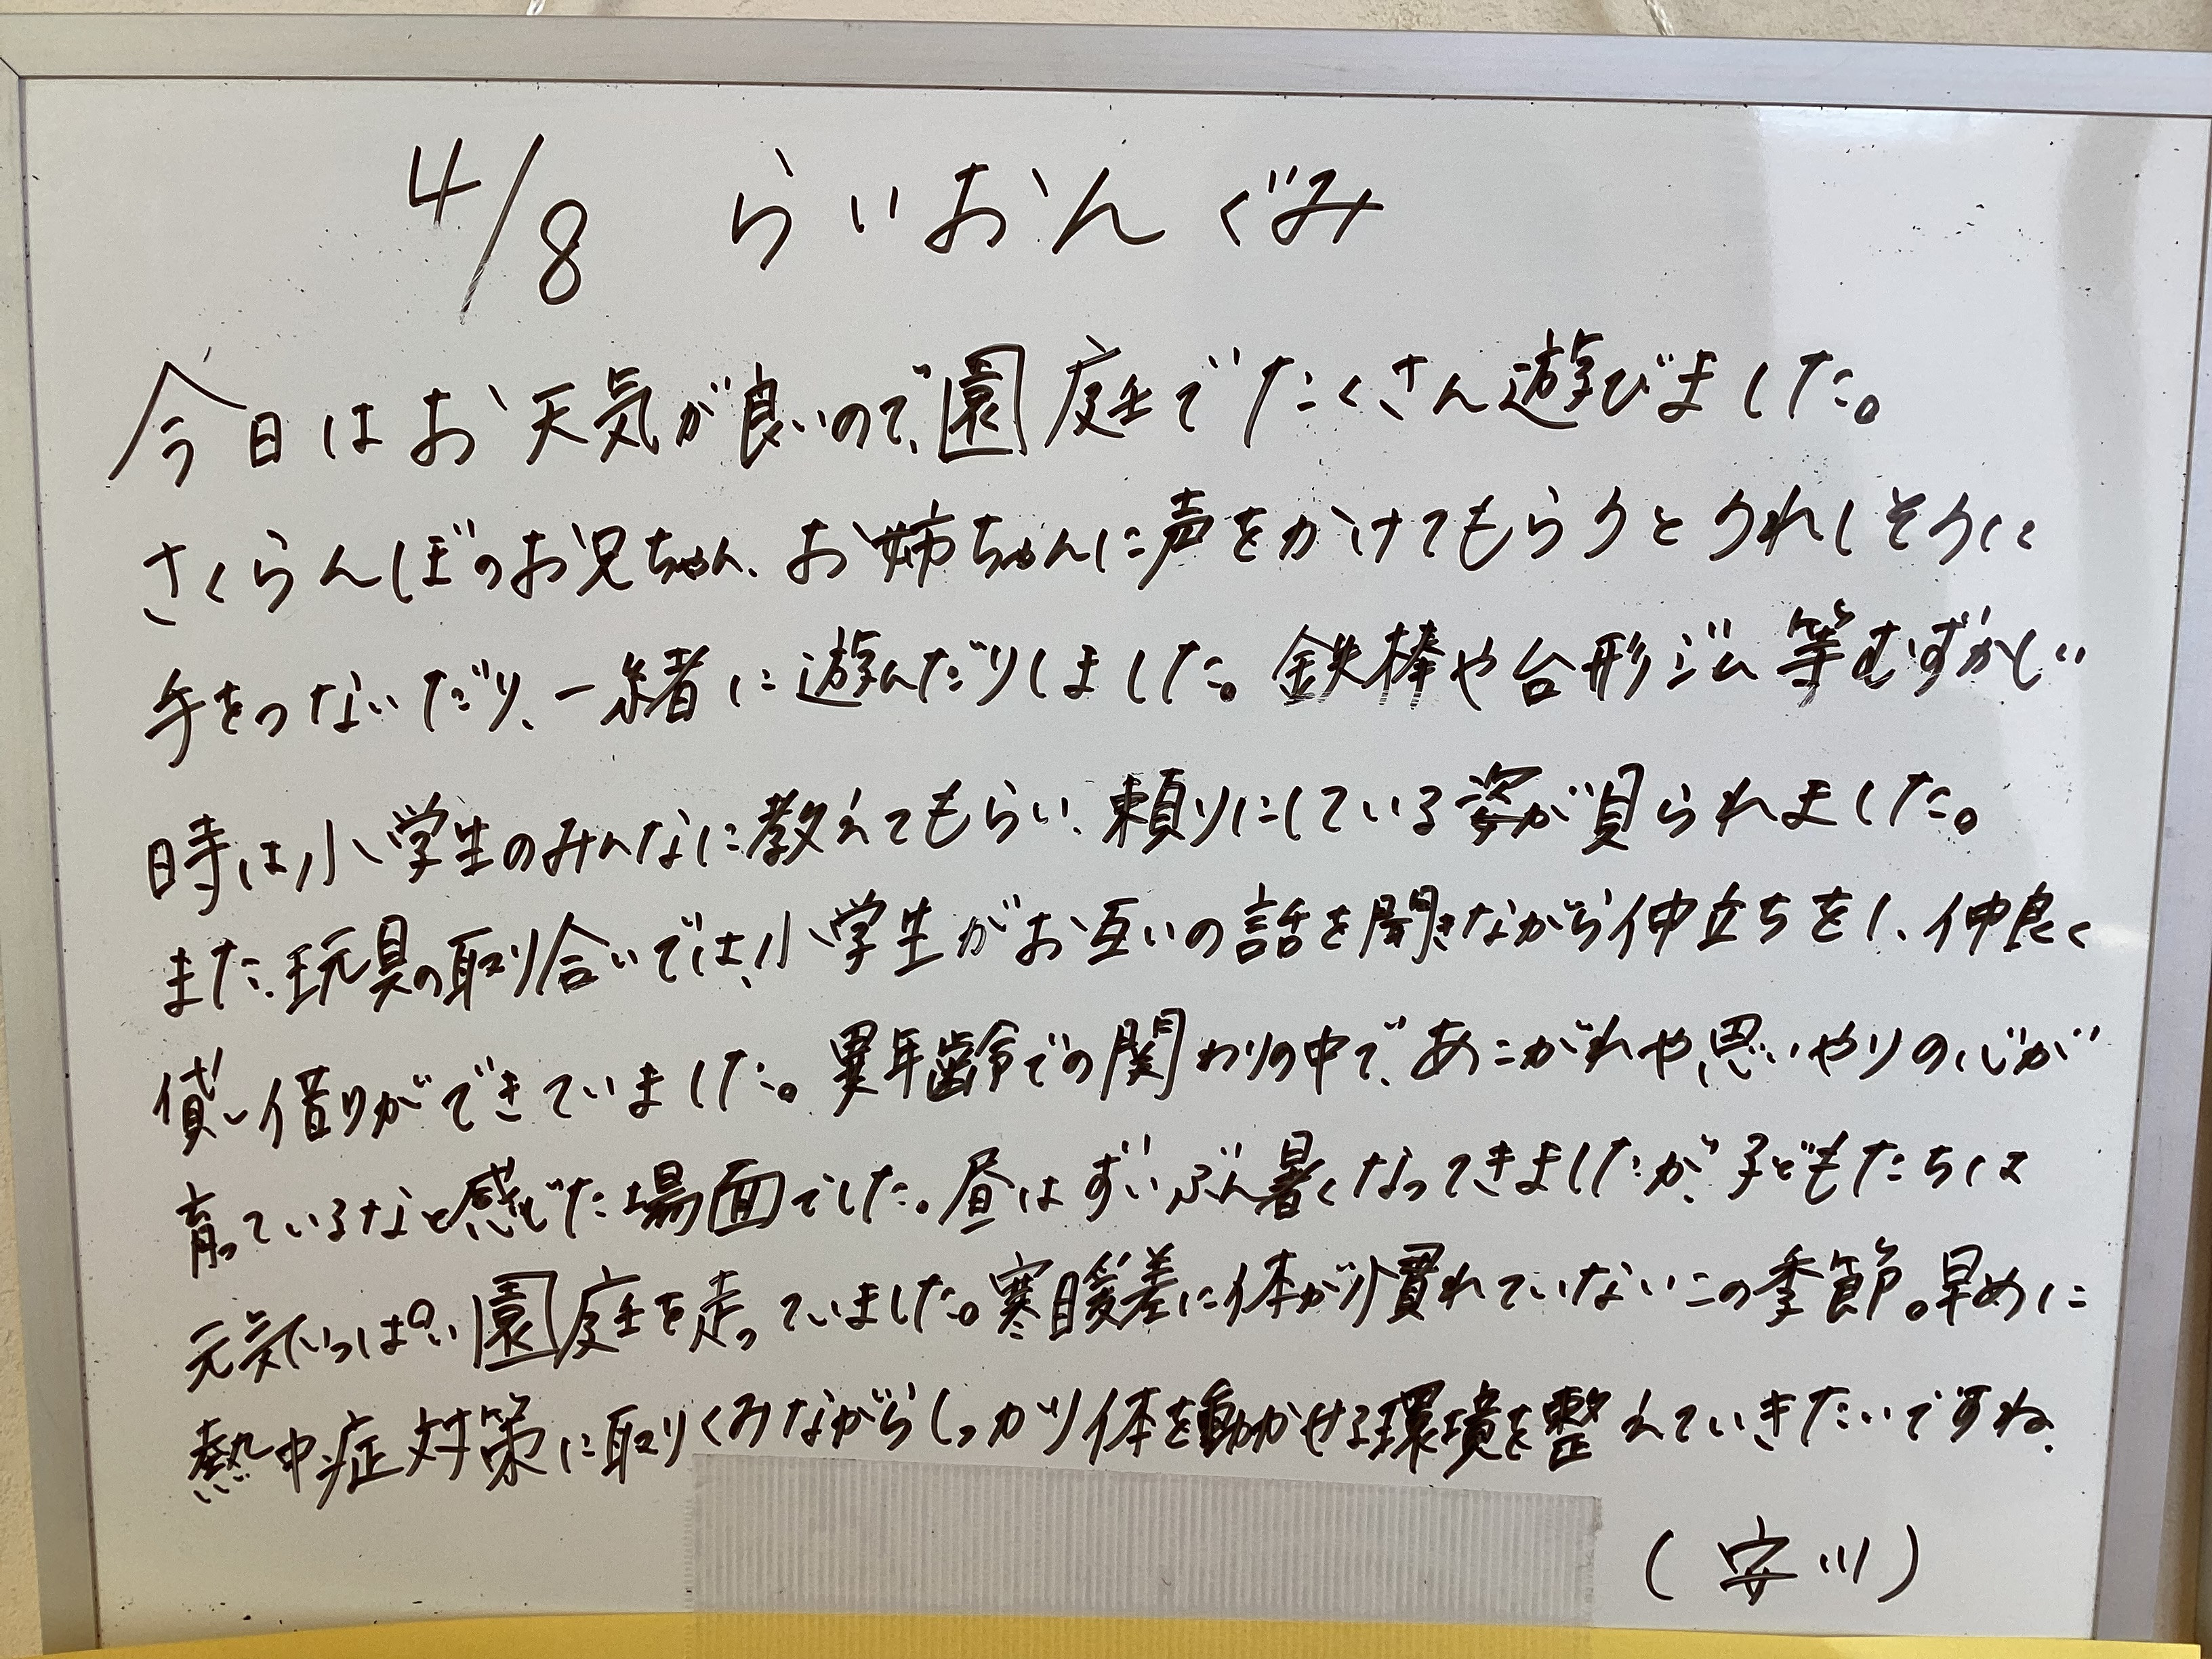 4/8 らいおんぐみ
今日はお天気が良いので、園庭でたくさん遊びました。
さくらんぼのお兄ちゃん、お姉ちゃんに声をかけてもらうとうれしそうに
手をつないだり、一緒に遊んだりしました。鉄棒や台形ジム等むずかしい
時は小学生のみんなに教えてもらい、頼りにしている姿が見られました。
また、玩具の取り合いでは、小学生がお互いの話を聞きながら仲立ちをし、仲良く
貸し借りができていました。異年齢での関わりの中で、あこがれや思いやりの心が
育っているなと感じた場面でした。昼はずいぶん暑くなってきましたが、子どもたちは
元気いっぱい園庭を走っていました。寒暖差に体が慣れていないこの季節。早めに
熱中症対策に取りくみながらしっかり体を動かせる環境を整えていきたいですね。
(安川)